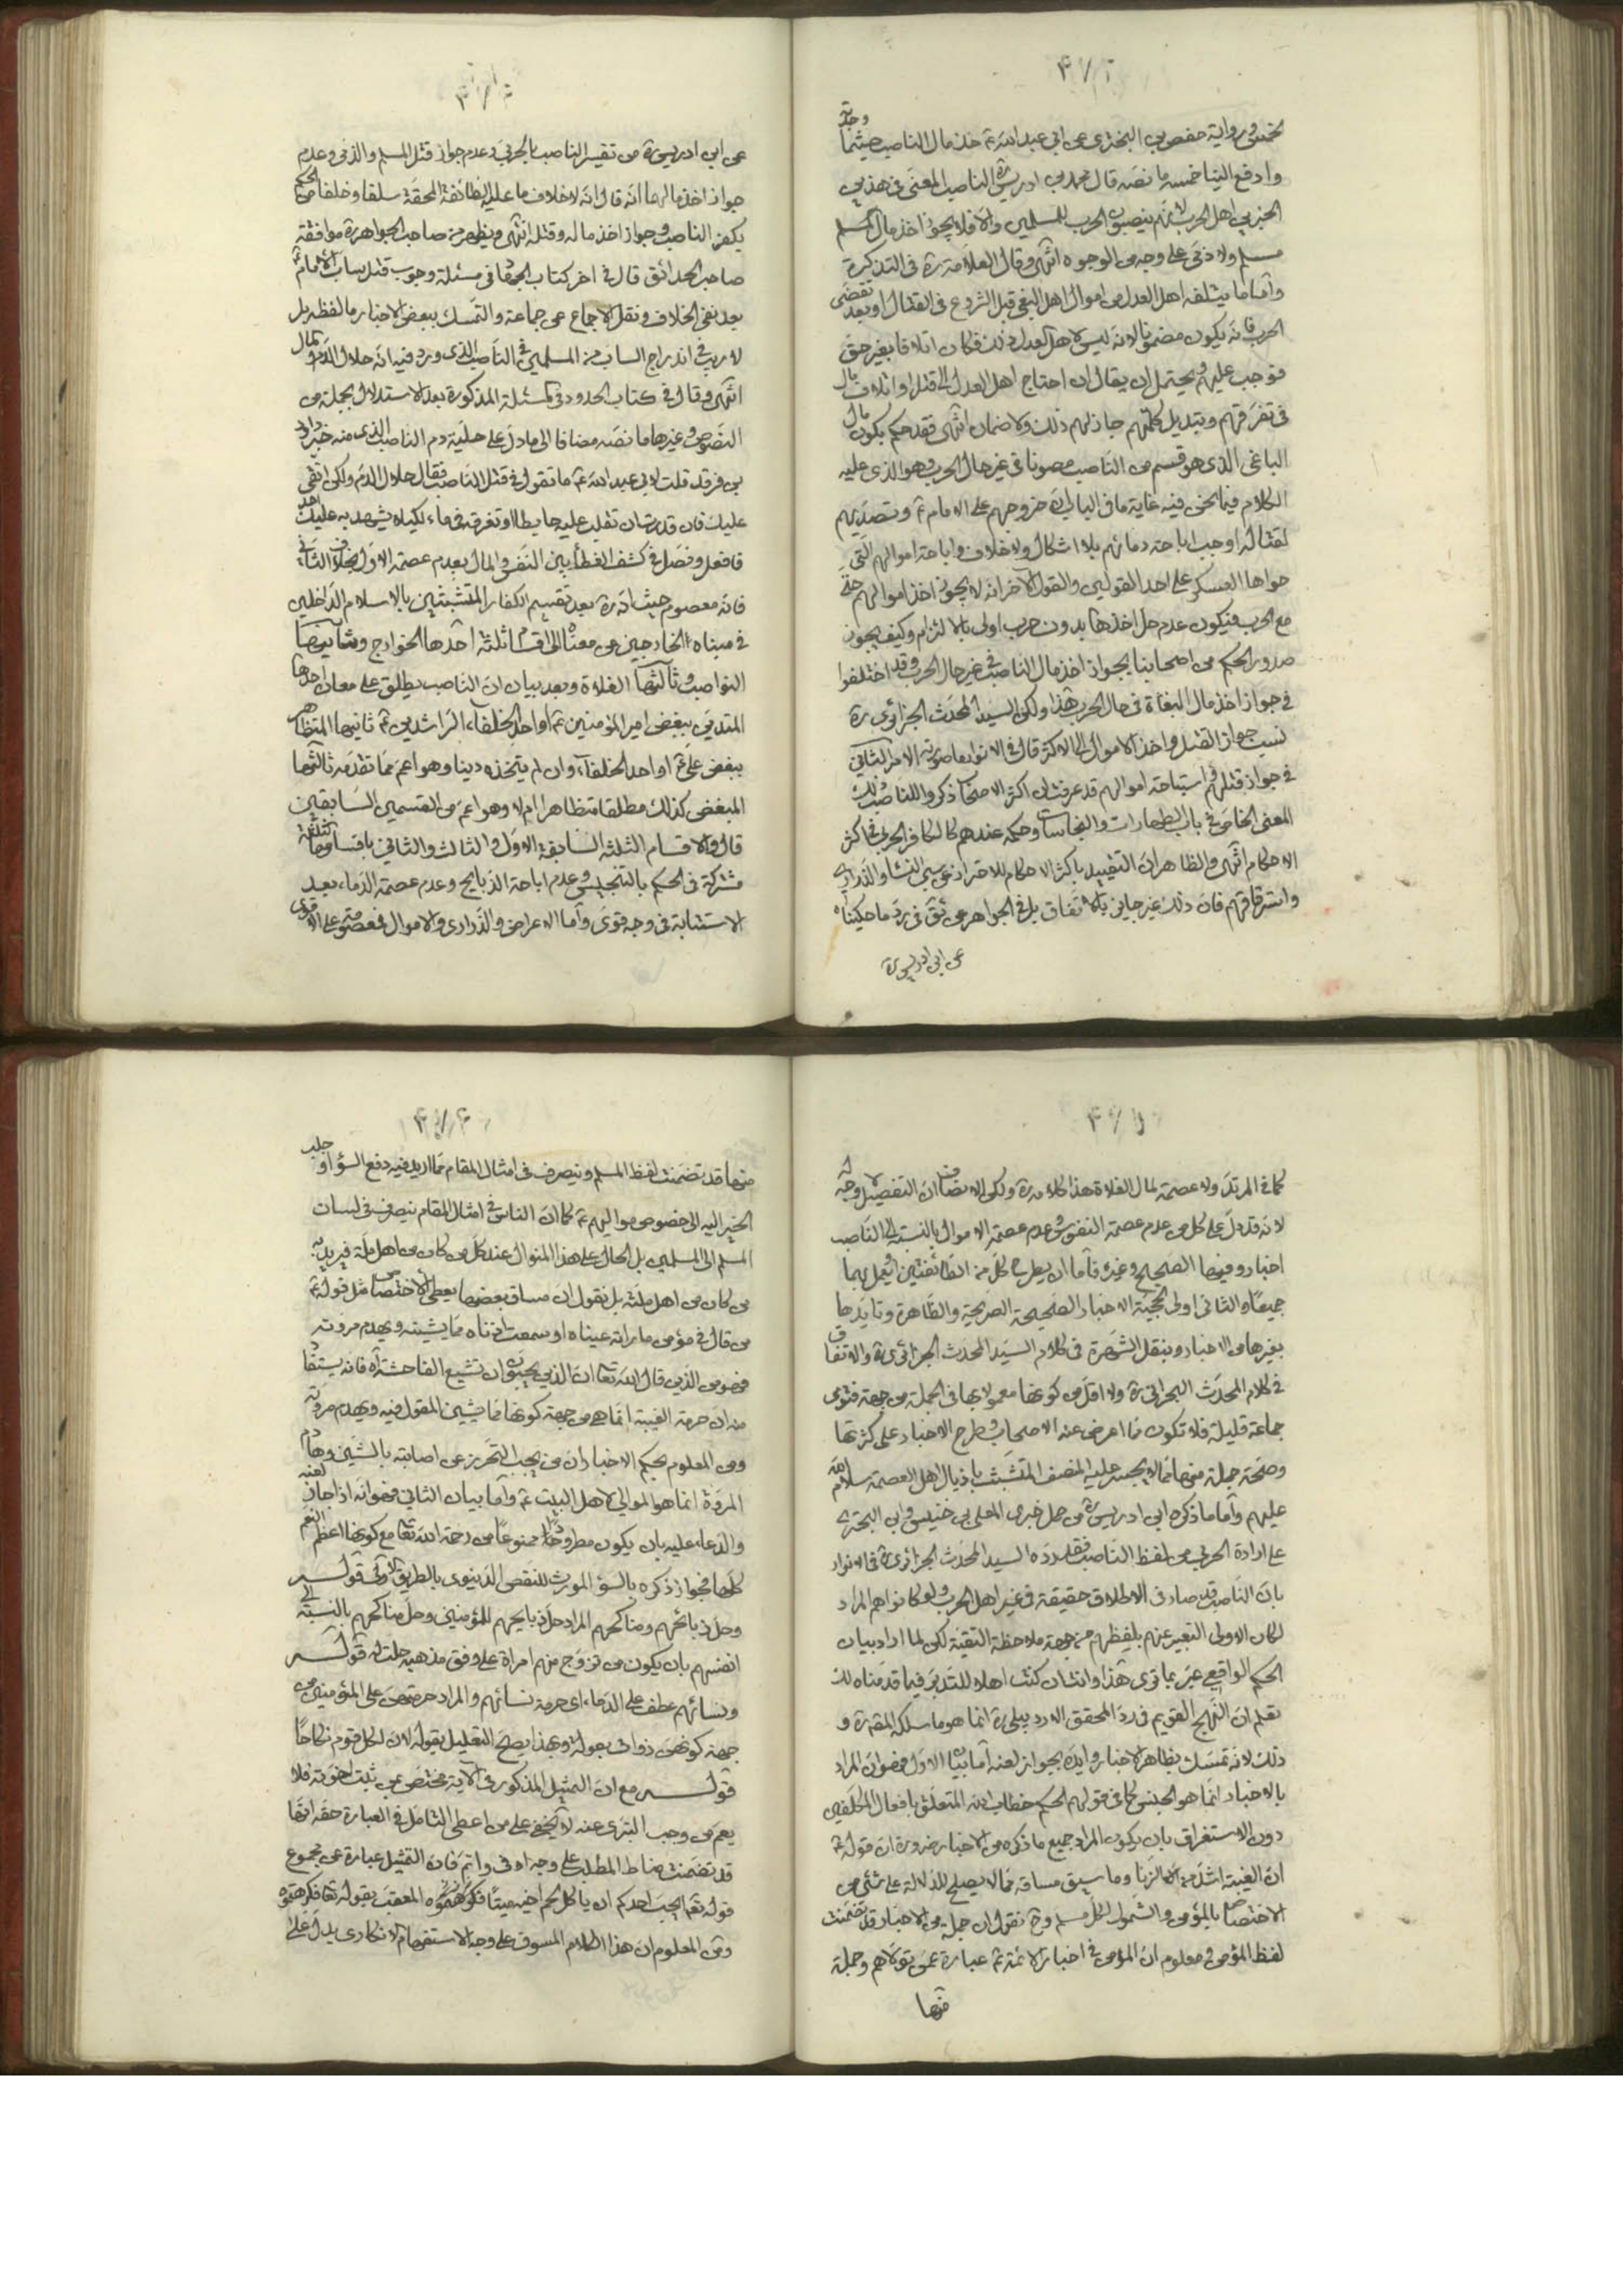 لخمس في رواية حفص بن البختري عن ابي عبد الله ع خذ مال الناصب حيثما وجدته
وادفع الينا خمسه ما نصّه قال محمد بن ادريس ره الناصب المعنى في هذين
الخبرين اهل الحرب لانّهم ينصبون الحرب للمسلمين والّا فلا يجوز اخذ مال
مسلم ولا ذمّي على وجه من الوجوه انتهى وقال العلامة ره في التذكرة
وامّا ما يتلفه اهل العدل من اموال اهل البغي قبل الشروع في القتال او بعد تقضّى
الحرب فانّه يكون مضمونا لانه ليس لاهل العدل ذلك فكان اتلافا بغير حق
فوجب عليهم ويحتمل ان يقال ان احتاج اهل العدل الى قتل او اتلاف مال
في تفرّقهم وتبديل كلمتهم جاز لهم ذلك ولا ضمان انتهى فقد حكم بكون مال
الباغي الذي هو قسم من النّاصب مصونا في غير حال الحرب وهو الذي عليه
الكلام فيما نحن فيه غاية ما في الباب انّ خروجهم على الامام ع وتصدّيهم
لقتاله اوجب اباحة دمائهم بلا اشكال ولا خلاف واباحة اموالهم التي
حواها العسكر على احد القولين والقول الآخر انه لا يجوز اخذ اموالهم حتّى
مع الحرب فيكون عدم حلّ اخذها بدون حرب اولى بالالتزام وكيف يجوز
صدور الحكم من اصحابنا بجواز اخذ مال النّاصب في غير حال الحرب وقد اختلفوا
في جواز اخذ مال البغاة في حال الحرب هذا ولكن السيد المحدّث الجزائري ره
نسب جواز القتل واخذ الاموال الى الاكثر قال في الانوار ما صورته الامر الثاني
في جواز قتلهم واستباحة اموالهم قد عرفت ان اكثر الاصحاب ذكروا للناصب ذلك
المعنى الخاص في باب الطهارات والنجاسات وحكمه عندهم كالكافر الحربي في اكثر
الاحكام انتهى والظاهر انّ التقييد باكثر الاحكام للاحتراز عن سبي النساء والذّراري
واسترقاقهم فانّ ذلك غير جايز بالاتفاق بل في الجواهر عن ثق في ردّ ما حكيناه
عن ابن ادريس ره
عن ابن ادريس ره من تفسير الناصب بالحربي وعدم جواز قتل المسلم والذمي وعدم
جواز اخذ مالهما انّه قال انّه لاخلاف ما عليه الطائفة المحقّة سلفا وخلفا من الحكم
بكفر الناصب وجواز اخذ ماله وقتله انتهى ويظهر من صاحب الجواهر ره موافقة
صاحب الحدائق قال في اخر كتاب الجهاد في مسئلة وجوب قتل ساب الامام ع
بعد نفي الخلاف ونقل الاجماع عن جماعة والتمسك ببعض الاخبار ما لفظه بل
لا ريب في اندراج الساب من المسلمين في النّاصب الذي ورد فيه انّه حلال الدّم والمال
انتهى وقال في كتاب الحدود في المسئلة المذكورة بعد الاستدلال بجملة من
النصوص وغيرها ما نصّه مضافا الى ما دلّ على حلّية دم الناصب الذي منه خبر داود
بن فرقد قلت لابي عبد الله ع ما تقول في قتل النّاصب فقال حلال الدّم ولكن اتقى
عليك فان قدرت ان تقلب عليه حايطا او تغرقه في ماء لكيلا يشهد به عليك احد
فافعل وفصّل في كشف الغطاء بين النفس والمال بعدم عصمة الاول بخلاف الثاني
فانه معصوم حيث انه ره بعد تقسيم الكفار المتشبثين بالاسلام الداخلين
في مبناه الخارجين عن معناه الى اقسام ثلثة احدها الخوارج وثانيها
النواصب وثالثها الغلاة وبعد بيان انّ الناصب يطلق على معان احدها
المتدين ببغض امير المؤمنين ع او احد الخلفاء الراشدين ع ثانيها المتظاهر
ببغض علي ع او احد الخلفاء وان لم يتخذه دينا وهو اعمّ ممّا تقدّمه ثالثها
المبغض كذلك مطلقا متظاهرا ام لا وهو اعمّ من القسمين السّابقين
قال والاقسام الثلثة السابقة الاول والثالث والثاني باقسامها الثلثة
مشتركة في الحكم بالتنجيس وعدم اباحة الذبايح وعدم عصمة الدّماء بعد
الاستتابة في وجه قوى وامّا الاعراض والذّراري والاموال فمعصومة على الاقوى
كما في المرتدّ ولا عصمة لمال الغلاة هذا كلامه ره ولكن الانصاف انّ التفصيل لا وجه له
لانه قد دلّ على كل من عدم عصمة النفوس وعدم عصمة الاموال بالنسبة الى النّاصب
اخبار وفيها الصحيح وغيره فامّا ان يعمل بكلّ من الطّائفتين او يعمل بهما
جميعا والثاني اولى لحجّية الاخبار الصحيحة الصّريحة والظّاهرة وتايّدها
بغيرها من الاخبار وبنقل الشّهرة في كلام السيّد المحدّث الجزائري ره والاتفاق
في كلام المحدّث البحراني ره ولا اقل من كونها معمولا بها في الجملة من جهة فتوى
جماعة قليلة فلا تكون ممّا اعرض عنه الاصحاب وطرح الاخبار على كثرتها
وصحّة جملة منها ممّا لا يجسر عليه المنصف المتشبّث باذيال اهل العصمة سلام الله
عليهم وامّا ما ذكره ابن ادريس ره من حمل خبري المعلى بن خنيس وابن البختري
على ارادة الحربي من لفظ الناصب فقد ردّه السيد المحدّث الجزائري ره في الانوار
بانّ النّاصب قد صار في الاطلاق حقيقة في غير اهل الحرب ولو كانوا هم المراد
لكان الاولى التعبير عنهم بلفظهم من جهة ملاحظة التقية لكن لما اراد بيان
الحكم الواقعي عبّر بما ترى هذا وانت ان كنت اهلا للتدبّر فيما قدّمناه لك
تعلم انّ النّهج القويم في ردّ المحقق الاردبيلي ره انما هو ما سلكه المص ره و
ذلك لانه تمسّك بظاهر الاخبار وايّده بجواز لعنه امّا بيان الاول فهو انّ المراد
بالاخبار انّما هو الجنس كما في قولهم الحكم خطاب الله المتعلق بافعال المكلفين
دون الاستغراق بان يكون المراد جميع ما ذكره من الاخبار ضرورة انّ قوله ع
انّ الغيبة اشدّ من الزنا وما سيق مساقه ممّا لا يصلح للدّلالة على شئ من
الاختصاص بالمؤمن والشّمول لكلّ مسلم وح نقول ان جملة من الاخبار قد تضمّنت
لفظ المؤمن ومعلوم انّ المؤمن في اخبار الائمة ع عبارة عمّن تولاهم وجملة
منها
منها قد تضمّنت لفظ المسلم وينصرف في امثال المقام ممّا اريد فيه دفع السؤ او جلب
الخير اليه الى خصوص مواليهم ع كما انّ الناس في امثال المقام ينصرف في لسان
المسلم الى المسلمين بل الحال على هذا المنوال عند كلّ من كان من اهل ملّة فيريد به
من كان من اهل ملّته بل نقول انّ مساق بعضها يعطى الاختصاص مثل قوله ع
من قال في مؤمن ما رأته عيناه او سمعت اذناه ممّا يشينه ويهدم مروته
فهو من الذين قال الله تعا انّ الذين يحبّون ان تشيع الفاحشة اه فانه يستفاد
منه ان حرمة الغيبة انّما هي من جهة كونها ممّا يشين المقول فيه ويهدم مروّته
ومن المعلوم بحكم الاخبار انّ من يجب التّحرّز عن اصابته بالشّين وهدم
المروّة انما هو الموالي لاهل البيت ع وامّا بيان الثاني فهو انّه اذا جاز لعنه
والدّعاء عليه بان يكون مطرودًا ممنوعًا من رحمة الله تعا مع كونها اعظم النعم
كلّها فجواز ذكره بالسّؤ المورث للنّقص الدّنيوي بالطريق الاولى قوله
وحلّ ذبائحهم ومناكحهم المراد حلّ ذبايحهم للمؤمنين وحلّ مناكحهم بالنسبة الى
انفسهم بان يكون من تزوّج منهم امراة على وفق مذهبه حلّت له قوله
ونسائهم عطف على الدّماء اى حرمة نسائهم والمراد حرمتهنّ على المؤمنين من
جهة كونهنّ ذوات بعولة وبهذا يصحّ التعليل بقوله لانّ لكل قوم نكاحًا
قوله مع انّ التمثيل المذكور في الاية مختصّ بمن ثبت اخوّته فلا
يعمّ من وجب التبرى عنه لا يخفى على من اعطى التامّل في العبارة حقّه انّها
قد تضمّنت مناط المطلب على وجه اوفى واتمّ فانّ التمثيل عبارة عن مجموع
قوله تعا ايحبّ احدكم ان ياكل لحم اخيه ميتًا فكرهتموه المعقّب بقوله تعا فكرهتموه
ومن المعلوم انّ هذا الكلام المسوق على وجه الاستفهام الانكاري يدلّ على